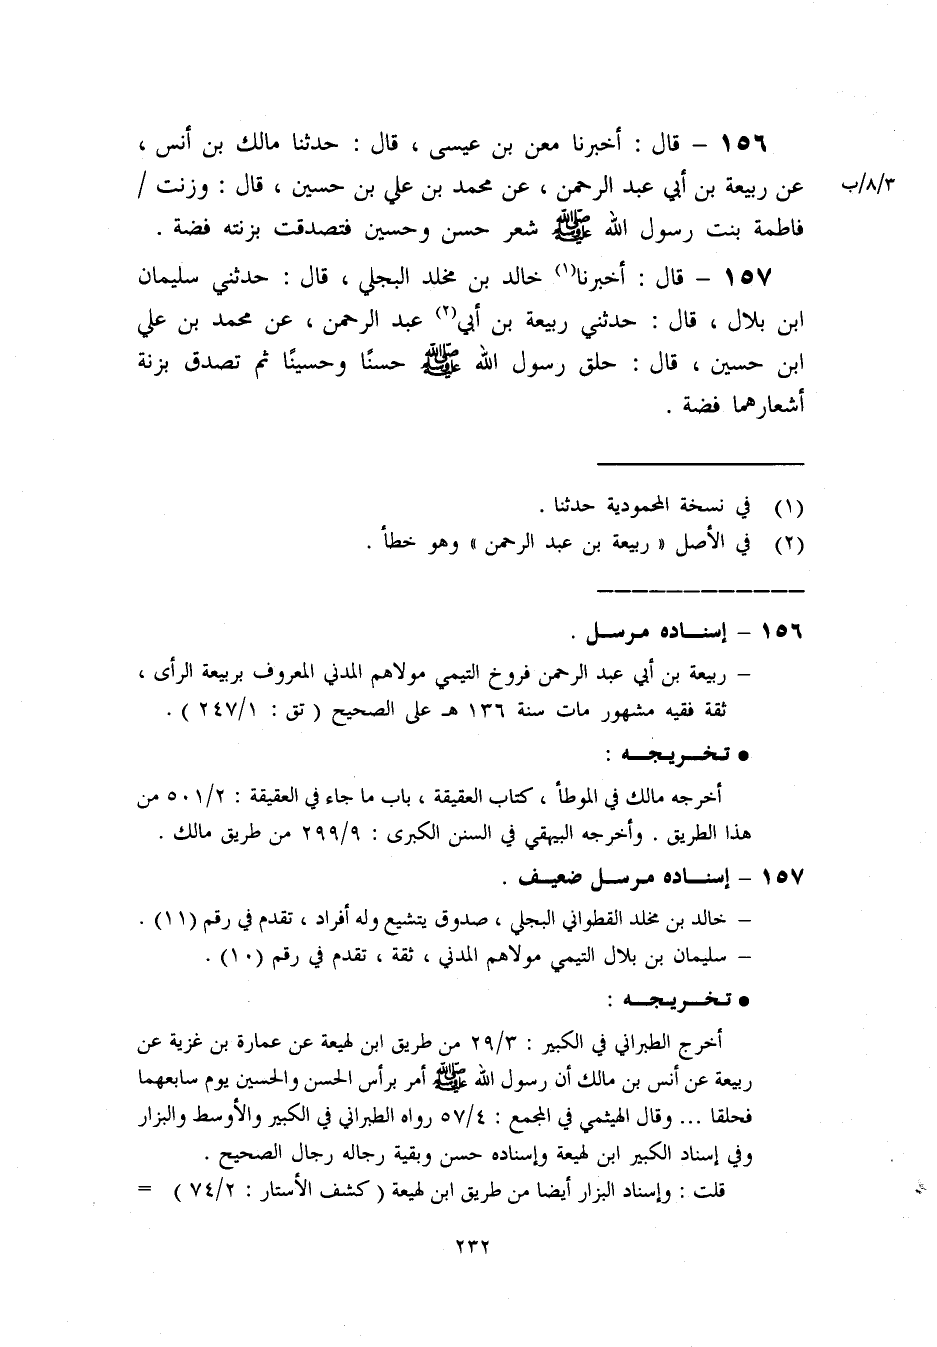 ١٥٦ – قال : أخبرنا معن بن عيسى ، قال : حدثنا مالك بن أنس ،
٣/٨/ب
عن ربيعة بن أبي عبد الرحمن ، عن محمد بن علي بن حسين ، قال : وزنت /
فاطمة بنت رسول الله ﷺ شعر حسن وحسين فتصدقت بزنته فضة .
١٥٧ – قال : أخبرنا(١) خالد بن مخلد البجلي ، قال : حدثني سليمان
ابن بلال ، قال : حدثني ربيعة بن أبي(٢) عبد الرحمن ، عن محمد بن علي
ابن حسين ، قال : حلق رسول الله ﷺ حسنًا وحسينًا ثم تصدق بزنة
أشعارهما فضة .
(١) في نسخة المحمودية حدثنا .
(٢) في الأصل « ربيعة بن عبد الرحمن » وهو خطأ .
١٥٦ – إسناده مرسل .
– ربيعة بن أبي عبد الرحمن فروخ التيمي مولاهم المدني المعروف بربيعة الرأى ،
ثقة فقيه مشهور مات سنة ١٣٦ هـ على الصحيح ( تق : ٢٤٧/١ ) .
● تخريجه :
أخرجه مالك في الموطأ ، كتاب العقيقة ، باب ما جاء في العقيقة : ٥٠١/٢ من
هذا الطريق . وأخرجه البيهقي في السنن الكبرى : ٢٩٩/٩ من طريق مالك .
١٥٧ – إسناده مرسل ضعيف .
– خالد بن مخلد القطواني البجلي ، صدوق يتشيع وله أفراد ، تقدم في رقم (١١) .
– سليمان بن بلال التيمي مولاهم المدني ، ثقة ، تقدم في رقم (١٠) .
● تخريجه :
أخرج الطبراني في الكبير : ٢٩/٣ من طريق ابن لهيعة عن عمارة بن غزية عن
ربيعة عن أنس بن مالك أن رسول الله ﷺ أمر برأس الحسن والحسين يوم سابعهما
فحلقا ... وقال الهيثمي في المجمع : ٥٧/٤ رواه الطبراني في الكبير والأوسط والبزار
وفي إسناد الكبير ابن لهيعة وإسناده حسن وبقية رجاله رجال الصحيح .
قلت : وإسناد البزار أيضا من طريق ابن لهيعة ( كشف الأستار : ٧٤/٢ ) =
٢٣٢